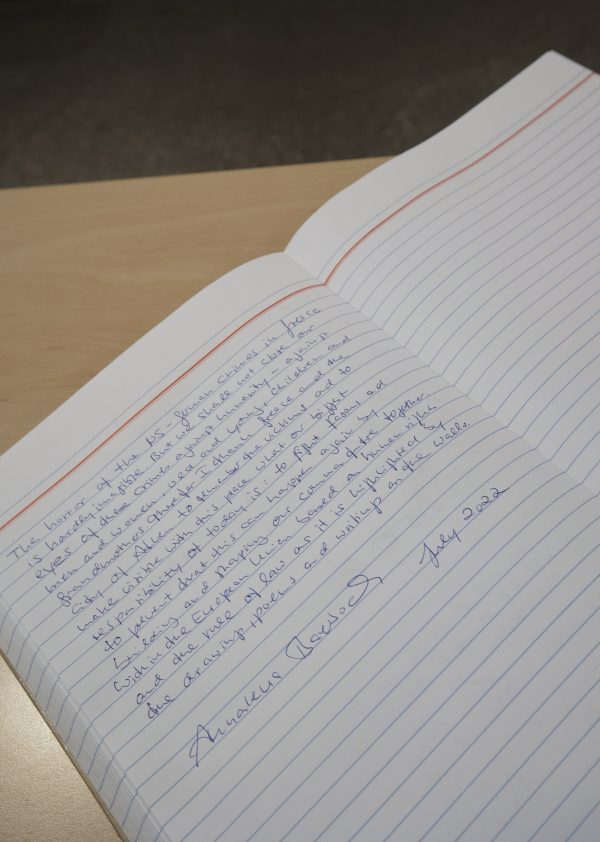 The horror of the NS-German Crimes in Greece
is hardly imagible. But we shall not close our
eyes of these crimes against humanity - against
men and women, old and young, children and
grandmothers. Therefor I thank Greece and the
city of Athen to remember the victims ad to
make visible with this place what or
responsibility of today is: to fight facism ad
to prevent that this can happen again by
building and shaping our common future together
within the European Union based on human rights
and the rule of law as it is highlighted by
the drawings, poems and writings on the walls.
Annalena Baerbock July 2022